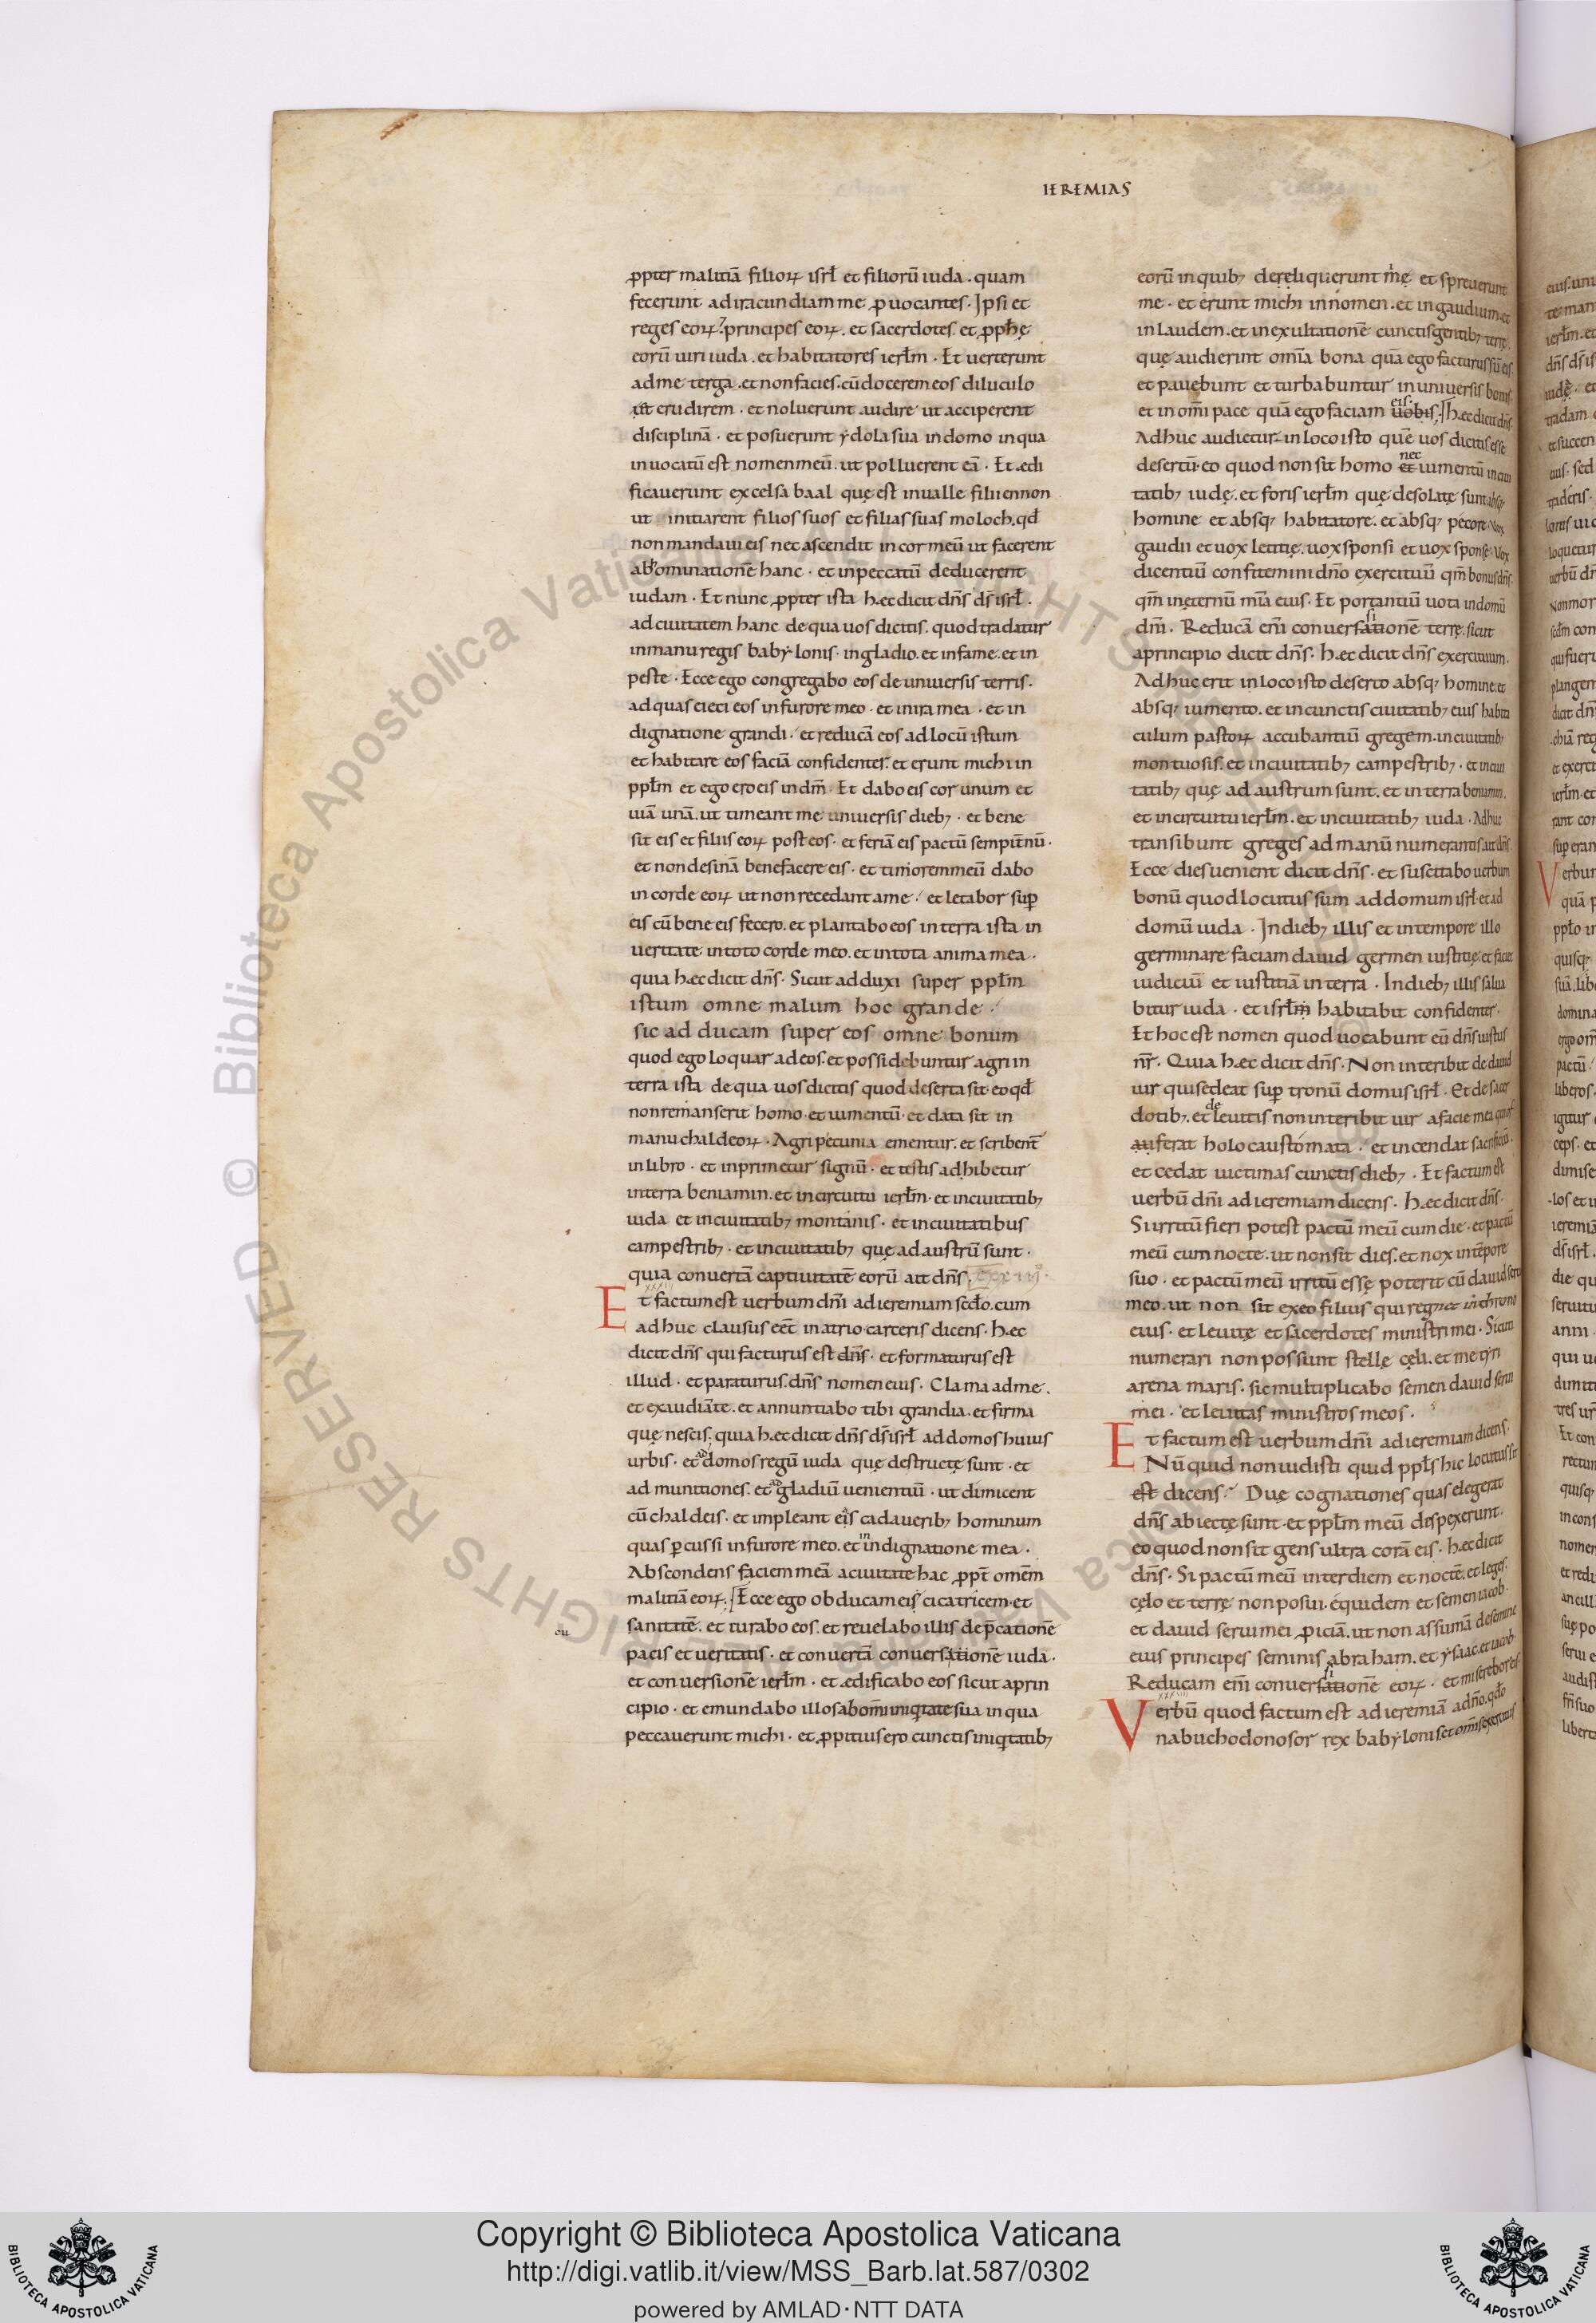 IEREMIAS
ꝓpter malitiā filioꝝ isrł et filiorū iuda . quam
fecerunt ad iracundiam me ꝓuocantes . Ipsi et
reges eoꝝ . principes eoꝝ . et sacerdotes . et ꝓphę
eorū uiri iuda . et habitatores ierłm . Et uerterunt
ad me terga . et non facies . cū docerem eos diluculo
ut erudirem . et noluerunt audire ut acciperent
disciplinā . et posuerunt ydola sua in domo in qua
inuocatū est nomen meū . ut polluerent eā . Et ædi
ficauerunt excelsa baal quę est in ualle filii ennon
ut initiarent filios suos et filias suas moloch . qđ
non mandaui eis nec ascendit in cor meū ut facerent
abominationē hanc . et in peccatū deducerent
iudam . Et nunc ꝓpter ista hæc dicit dn̄s ds̄ isrł .
ad ciuitatem hanc de qua uos dicitis . quod tradatur
in manu regis babylonis . in gladio . et in fame . et in
peste . Ecce ego congregabo eos de uniuersis terris .
ad quas eieci eos in furore meo . et in ira mea . et in
dignatione grandi . et reducā eos ad locū istum
et habitare eos faciā confidentes . et erunt michi in
ppłm et ego ero eis in dm̄ . Et dabo eis cor unum et
uiā unā . ut timeant me uniuersis dieb; . et bene
sit eis et filiis eoꝝ post eos . et feriā eis pactū sempit̄nū .
et non desinā benefacere eis . et timorem meū dabo
in corde eoꝝ ut non recedant a me . et letabor suꝑ
eis cū bene eis fecero . et plantabo eos in terra ista in
ueritate . in toto corde meo . et in tota anima mea .
quia hæc dicit dn̄s . Sicut adduxi super ppłm
istum omne malum hoc grande .
sic adducam super eos omne bonum
quod ego loquar ad eos . et possidebuntur agri in
terra ista de qua uos dicitis quod deserta sit . eo qđ
non remanserit homo . et iumentū . et data sit in
manu chaldeoꝝ . Agri pecunia ementur . et scribent̄
in libro . et inprimetur signū . et testis adhibetur
in terra beniamin . et in circuitu ierłm . et in ciuitatib;
iuda et in ciuitatib; montanis . et in ciuitatibus
campestrib; . et in ciuitatib; quę ad austrū sunt .
quia conuertā captiuitatē eorū ait dn̄s .
Et factum est uerbum dn̄i ad ieremiam scđo . cum
adhuc clausus eēt in atrio carceris dicens . hæc
dicit dn̄s qui facturus est dn̄s . et formaturus est
illud . et paraturus . dn̄s nomen eius . Clama ad me .
et exaudiā te . et annuntiabo tibi grandia . et firma
quę nescis . quia hæc dicit dn̄s ds̄ isrł ad domos huius
urbis . et ad domos regū iuda quę destructę sunt . et
ad munitiones . et ad gladiū uenientiū . ut dimicent
cū chaldeis . et impleant eas cadauerib; hominum
quas ꝑcussi in furore meo . et in indignatione mea .
Abscondens faciem meā a ciuitate hac ꝓpt̄ omēm
malitiā eoꝝ . Ecce ego obducam eis cicatricem . et
sanitatē . et curabo eos . et reuelabo illis dep̄cationē
pacis et ueritatis . et conuertā conuersationē iuda .
et conuersionē ierłm . et ædificabo eos sicut a prin
cipio . et emundabo illos ab om̄i iniq̇tate sua in qua
peccauerunt michi . et ꝓpitius ero cunctis iniq̇tatib;
eorū in quib; dereliquerunt me et spreuerunt
me . et erunt michi in nomen . et in gaudium . et
in laudem . et in exultationē cunctis gentib; terrę .
quę audierint omīa bona quā ego facturus sū eis .
et pauebunt et turbabuntur in uniuersis bonis .
et in om̄i pace quā ego faciam eis . Hæc dicit dn̄s .
Adhuc audietur in loco isto quē uos dicitis esse
desertū . eo quod non sit homo nec iumentū in ciui
tatib; iudę . et foris ierłm quę desolatę sunt absq;
homine et absq; habitatore . et absq; pecore . Vox
gaudii et uox letitię . uox sponsi et uox sponsę . Vox
dicentiū confitemini dn̄o exercituū qm̄ bonus dn̄s .
qm̄ in ęternū mīa eius . Et portantiū uota in domū
dn̄i . Reducā eni̅ conuersionē terrę . sicut
a principio dicit dn̄s . hæc dicit dn̄s exercituum .
Adhuc erit in loco isto deserto absq; homine . et
absq; iumento . et in cunctis ciuitatib; eius habita
culum pastoꝝ accubantiū gregem . in ciuitatib;
montuosis . et in ciuitatib; campestrib; . et in ciui
tatib; quę ad austrum sunt . et in terra beniamin .
et in circuitu ierłm . et in ciuitatib; iuda . Adhuc
transibunt greges ad manū numerantis ait dn̄s .
Ecce dies uenient dicit dn̄s . et suscitabo uerbum
bonū quod locutus sum ad domum isrł . et ad
domū iuda . In dieb; illis et in tempore illo
germinare faciam dauid germen iustitię . et faciet
iudiciū et iustitiā in terra . In dieb; illis salua
bitur iuda . et isrł habitabit confidenter .
Et hoc est nomen quod uocabunt eū dn̄s iustus
nr̄ . Quia hæc dicit dn̄s . Non interibit de dauid
uir qui sedeat suꝑ tronū domus isrł . Et de sacer
dotib; . et de leuitis non interibit uir a facie mea qui of
ferat holocaustomata . et incendat sacrificiū .
et cedat uictimas cunctis dieb; . Et factum est
uerbū dn̄i ad ieremiam dicens . hæc dicit dn̄s .
Si irritū fieri potest pactū meū cum die . et pactū
meū cum nocte . ut non sit dies . et nox in tēpore
suo . et pactū meū irritū esse poterit cū dauid seruo
meo . ut non sit ex eo filius qui regnet in throno
eius . et leuitę et sacerdotes ministri mei . Sicuti
numerari non possunt stellę cęli . et metyri
arena maris . sic multiplicabo semen dauid serui
mei . et leuitas ministros meos .
Et factum est uerbum dn̄i ad ieremiam dicens .
Nū quid non uidisti quid ppłs hic locutus sit
dicens . Duę cognationes quas elegerat
dn̄s abiectę sunt . et ppłm meū despexerunt .
eo quod non sit gens ultra corā eis . hæc dicit
dn̄s . Si pactū meū inter diem et noctē . et leges
cęlo et terrę non posui . equidem et semen iacob .
et dauid serui mei ꝓiciā . ut non assumā de semine
eius principes seminis abraham . et ysaac . et iacob .
Reducam eni̅ conuersionē eoꝝ . et miserebor eis .
Verbū quod factum est ad ieremiā a dn̄o . qđo
nabuchodonosor rex babylonis . et om̄is exercitus
Copyright © Biblioteca Apostolica Vaticana
http://digi.vatlib.it/view/MSS_Barb.lat.587/0302
powered by AMLAD·NTT DATA